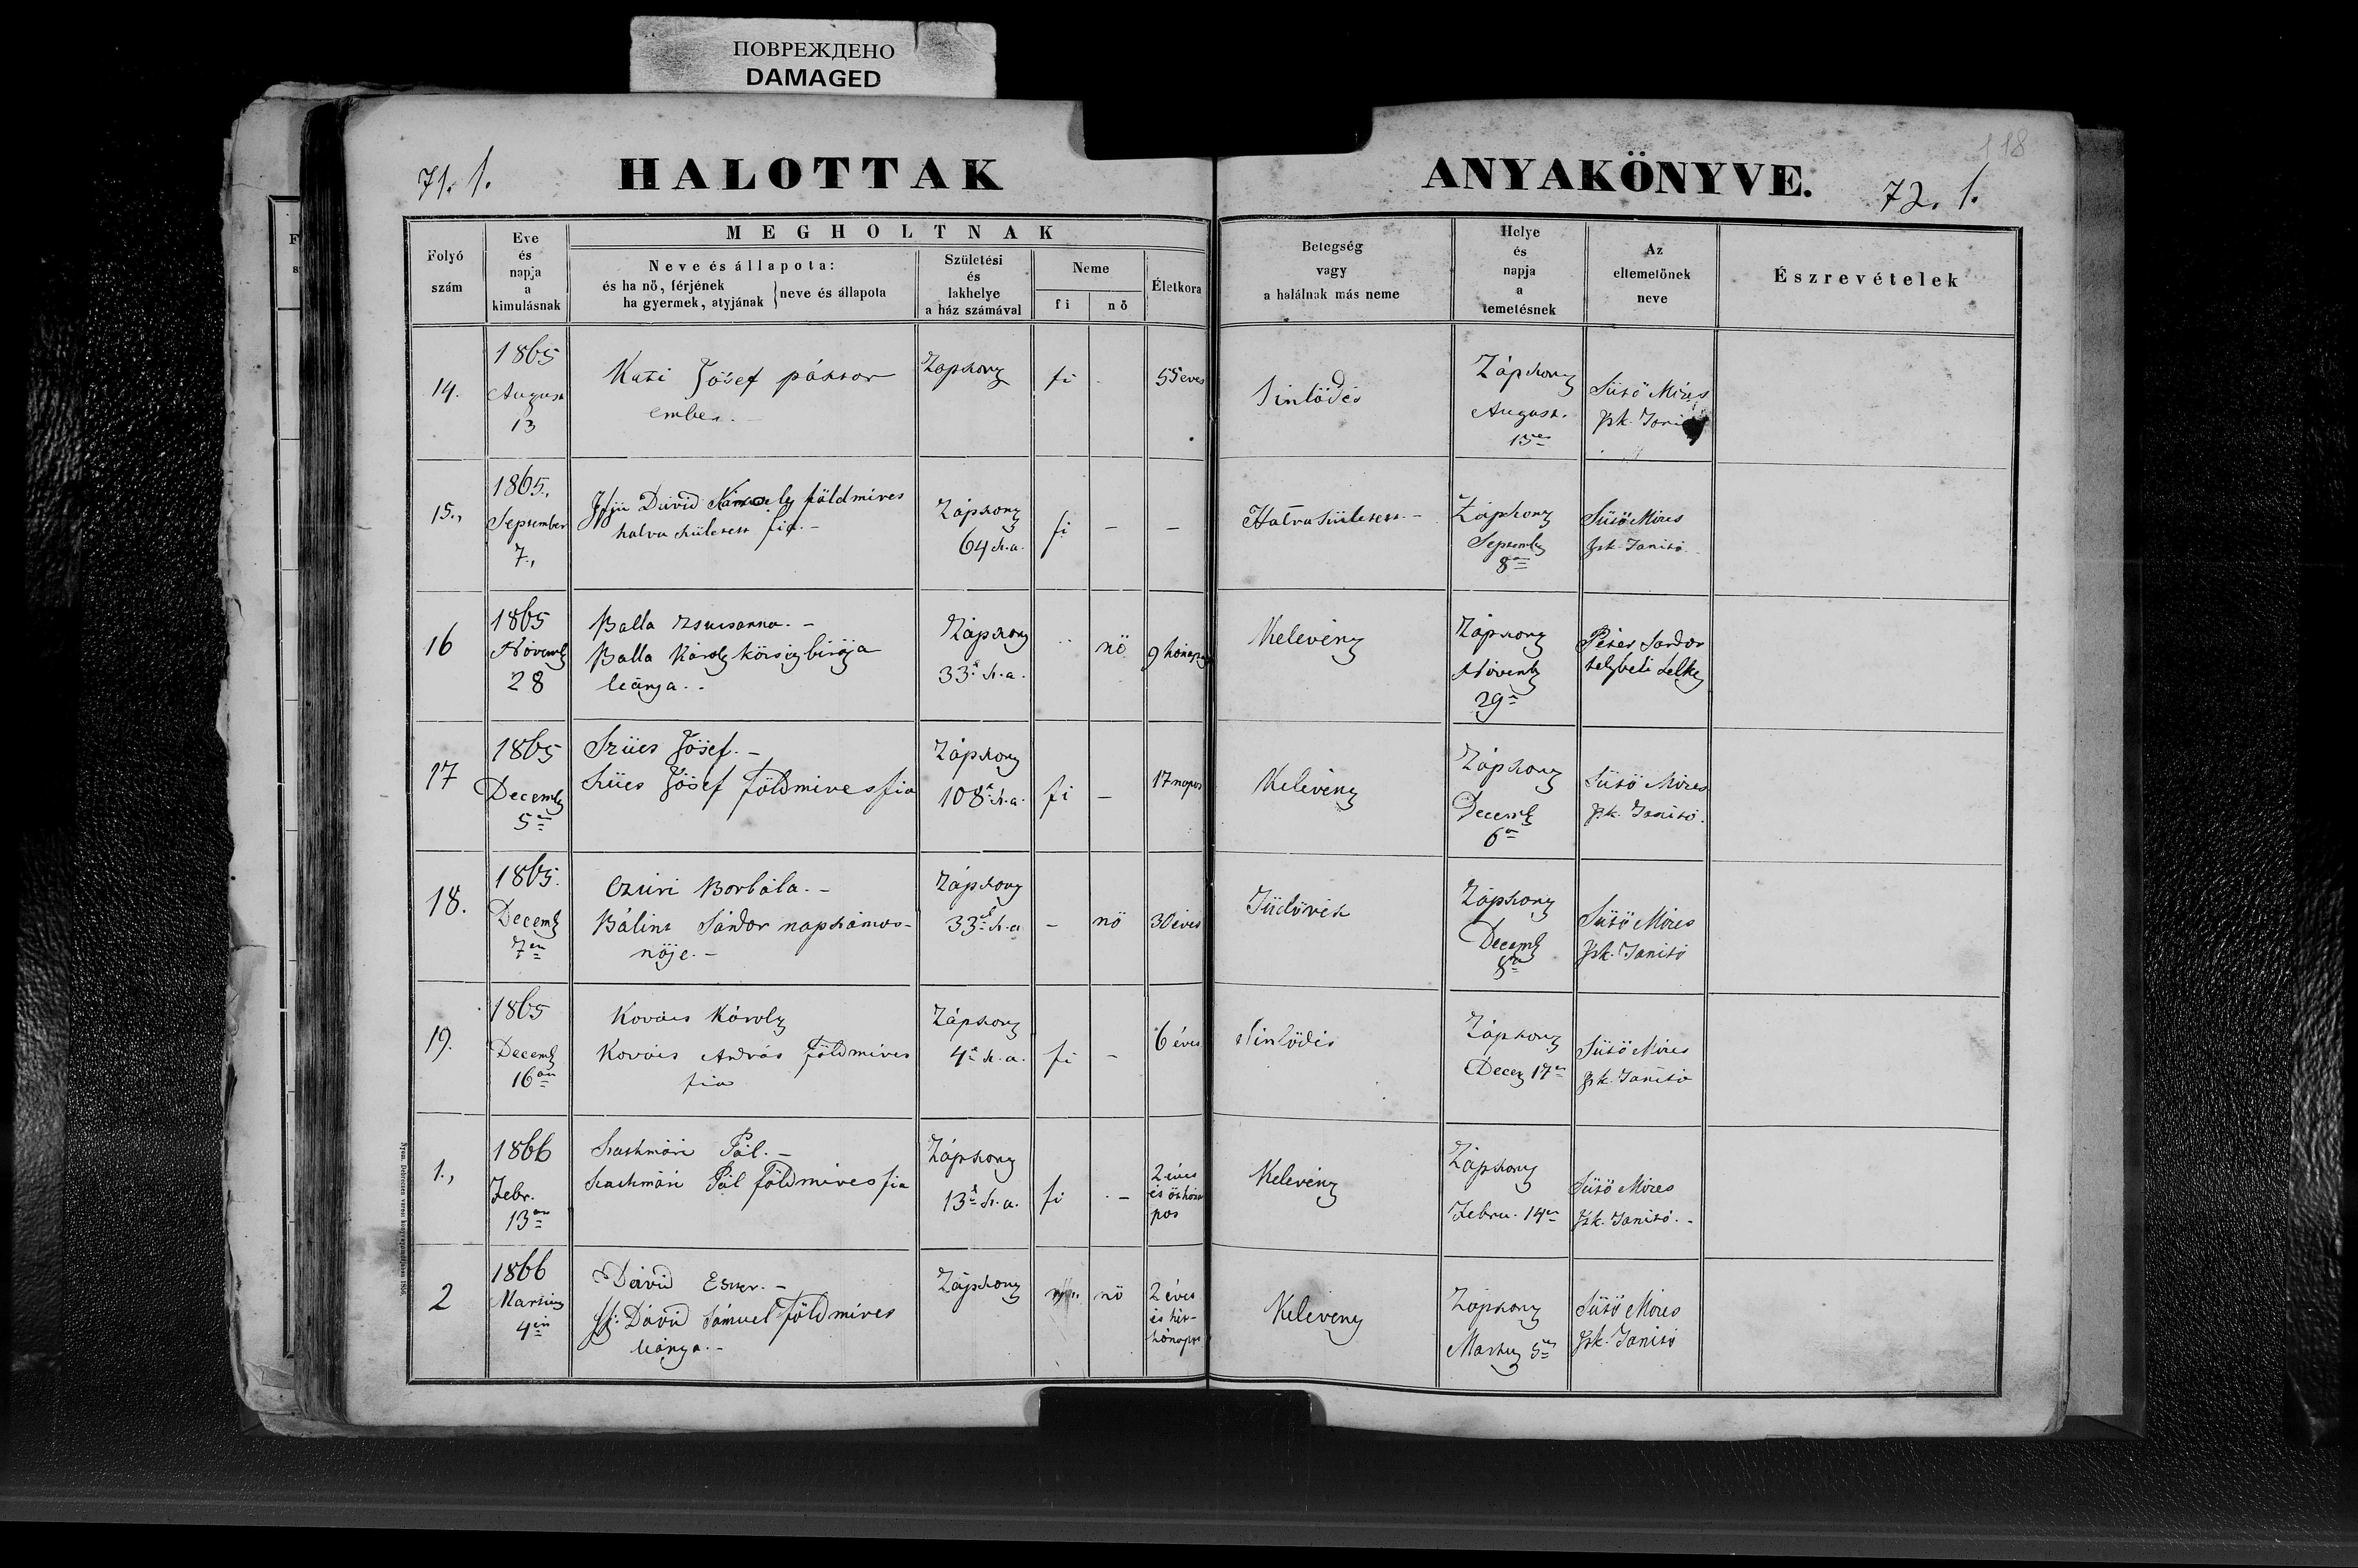 ПОВРЕЖДЕНО
DAMAGED
118
71. l.
HALOTTAK
ANYAKÖNYVE.
72. l.
Folyó
szám
Eve
és
napja
a
kimulásnak
MEGHOLTNAK
Neve és állapota:
és ha nő, férjének
ha gyermek, atyjának } neve és állapota
Születési
és
lakhelye
a ház számával
Neme
fi
nő
Életkora
Betegség
vagy
a halálnak más neme
Helye
és
napja
a
temetésnek
Az
eltemetőnek
neve
Észrevételek
14.
1865
August
13
Kati Jósef pásztor
ember. -
Zápszony
fi
55 éves
Sinlődés
Zápszony
August.
15én
Sütő Mózes
Isk. Tanitó
15.,
1865.,
September
7.,
Ifjú Dávid Károly földmives
halva született fia. -
Zápszony
64 sz. a.
fi
-
-
Halva született -
Zápszony
Septemb
8án
Sütő Mózes
Isk. Tanitó
16
1865
Novemb
28
Balla Zsuzsanna. -
Balla Károly község birója
leánya. -
Zápszony
33k sz. a.
nő
9 hónapos
Kelevény
Zápszony
Novemb
29n
Péter Sandor
helybeli Lelkész
17
1865
Decemb
5én
Szücs Jósef. -
Szücs Jósef földmives fia
Zápszony
108k sz. a.
fi
-
17 napos
Kelevény
Zápszony
Decemb
6án
Sütő Mózes
Isk. Tanitó.
18.
1865.
Decemb
7én
Czúri Borbála. -
Bálint Sándor napszámos-
nője. -
Zápszony
33k sz. a
-
nő
30 éves
Tüdővész
Zápszony
Decemb
8án
Sütő Mózes
Isk. Tanitó
19.
1865
Decemb
16án
Kovács Károly
Kovács András földmives
fia
Zápszony
4k sz. a.
fi
-
6 éves
Sinlődés
Zápszony
Decem 17n
Sütő Mózes
Isk. Tanitó
1.,
1866
Febr.
13án
Szathmári Pál. -
Szathmári Pál földmives fia
Zápszony
13k sz. a.
fi
-
2 éves
és öt hóna
pos
Kelevény
Zápszony
Febru. 14én
Sütő Mózes
Isk. Tanitó. -
2
1866
Martius
4én
Dávid Eszter. -
Ifj: Dávid Sámuel földmives
leánya. -
Zápszony
nő
2 éves
és hét-
hónapos
Kelevény
Zápszony
Martius 5én
Sütő Mózes
Isk. Tanitó